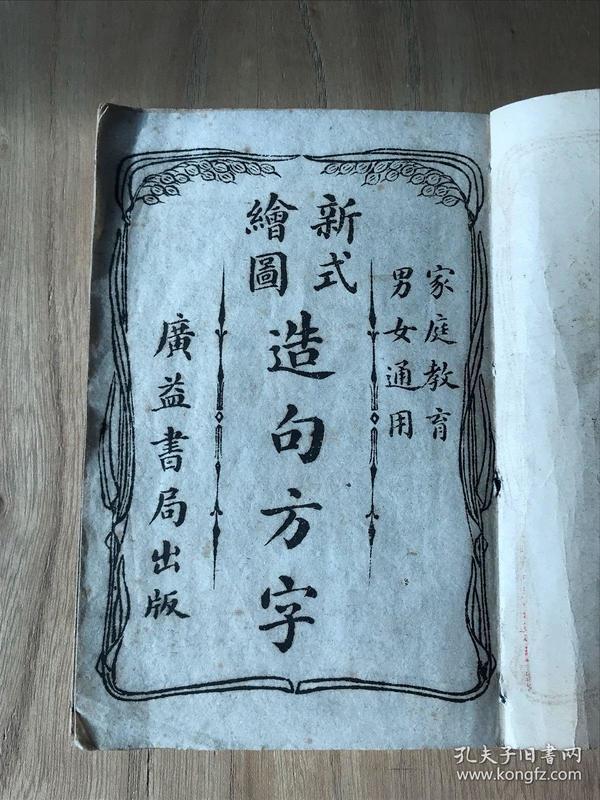 家庭教育
男女通用
新式
繪圖
造句方字
廣益書局出版
孔夫子旧书网
www.kongfz.com